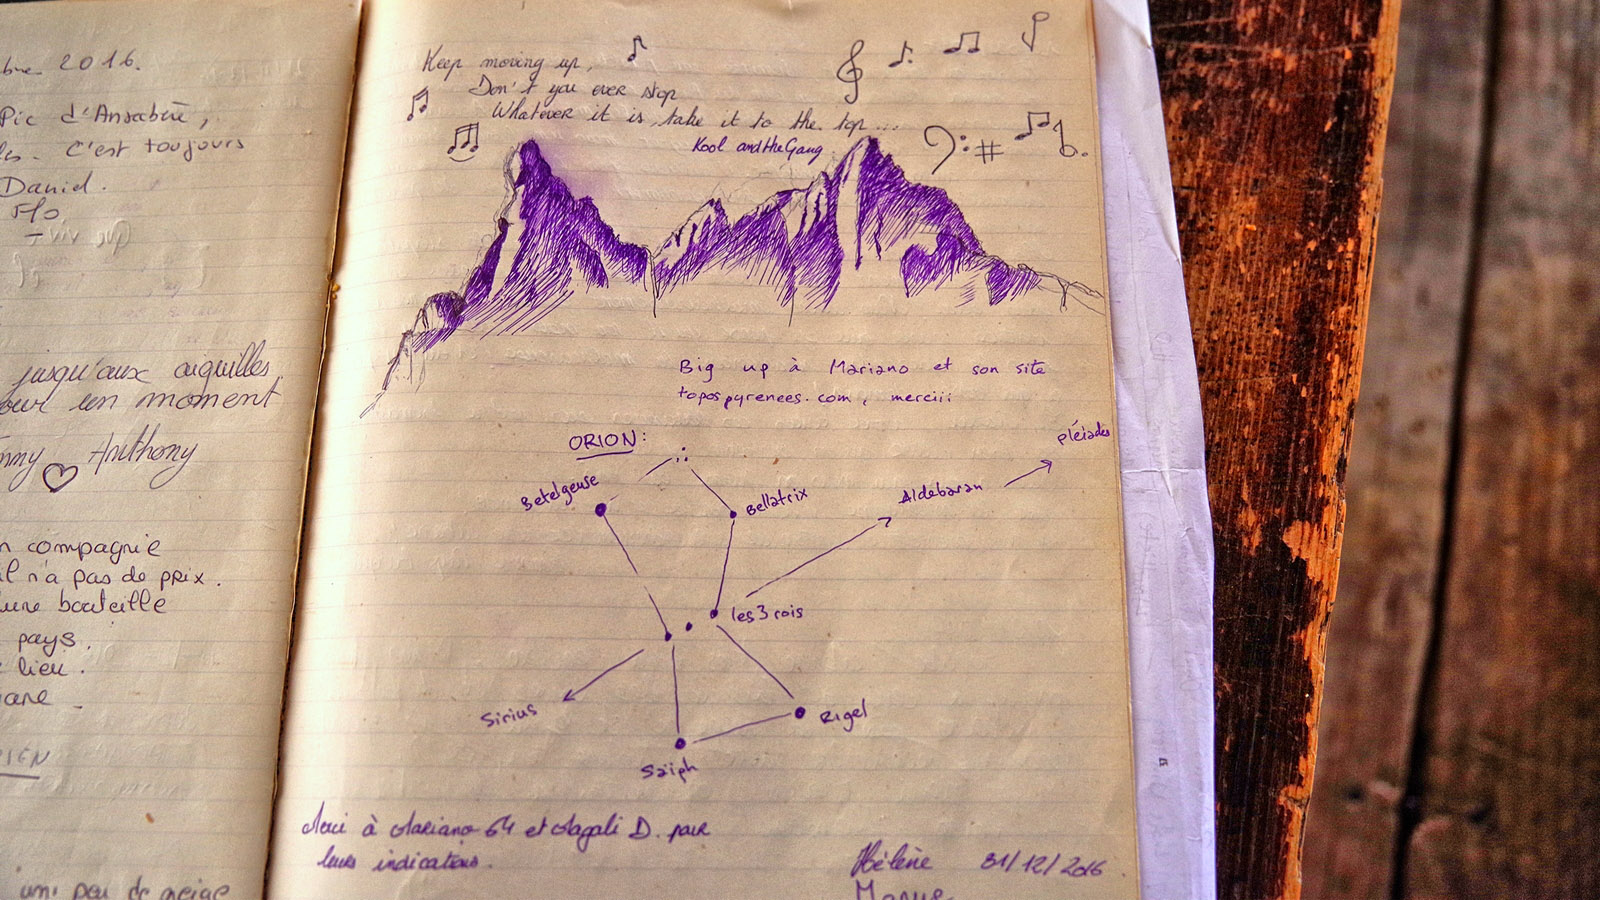 2016.
Pic d'Ansabère,
C'est toujours
Daniel.
Flo
jusqu'aux aiguilles
pour un moment
Anthony
compagnie
il n'a pas de prix.
d'une bouteille
pays.
lieu.
un peu de neige
Keep moving up,
Don't you ever stop
Whatever it is, take it to the top...
Kool and the Gang
Big up à Mariano et son site
topospyrenees.com, merciii
ORION:
Betelgeuse
Bellatrix
Aldebaran
pléiades
les 3 rois
Sirius
Rigel
Saïph
Merci à Mariano 64 et Magali D. pour
leurs indications.
Hélène 31/12/2016